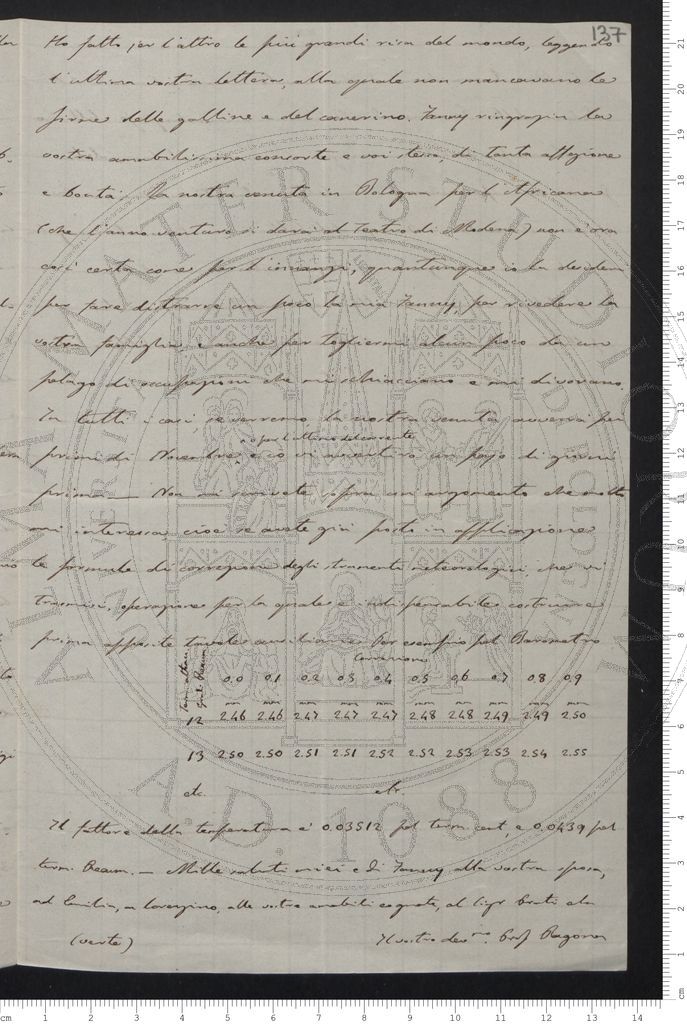 137
Ho fatto jer l'altro le più grandi risa del mondo, leggendo
l'ultima vostra lettera, alla quale non mancavano le
firme delle galline e del canerino. Fanny ringrazia la
vostra amabilissima consorte e voi stesso, di tanta affezione
e bontà. La nostra venuta in Bologna per l'Africana
(che l'anno venturo si darà al Teatro di Modena) non è ora
così certa come per l'innanzi, quantunque io la desideri
per fare distrarre un poco la mia Fanny, per rivedere la
vostra famiglia, e anche per togliermi alcun poco da un
pelago di occupazioni che mi schiacciano e mi divorano.
In tutti i casi se verremo la nostra venuta avverrà pei
o per l'ultimo del corrente
primi di Novembre, e io vi avvertirò un pajo di giorni
prima — Non mi scrivete sopra un argomento che molto
mi interessa cioè se avete già posto in applicazione
le formule di correzione degli strumenti meteorologici, che vi
trasmisi, operazione per la quale è indispensabile costruire
prima apposite tavole ausiliarie. Per esempio pel Barometro
Correzione
0.0 0.1 0.2 0.3 0.4 0.5 0.6 0.7 0.8 0.9
mm mm mm mm mm mm mm mm mm mm
12 2.46 2.46 2.47 2.47 2.47 2.48 2.48 2.49 2.49 2.50
13 2.50 2.50 2.51 2.51 2.52 2.52 2.53 2.53 2.54 2.55
etc. etc.
Il fattore della temperatura è 0.03512 pel term. cent. e 0.0439 pel
term. Reaum. — Mille saluti miei e di Fanny alla vostra sposa,
ad Emilia, a Lorenzino, alle vostre amabili cognate, al Sigr
(verte) Il vostro dev.mo Prof Ragona
ALMA MATER STUDIORUM
A.D. 1088